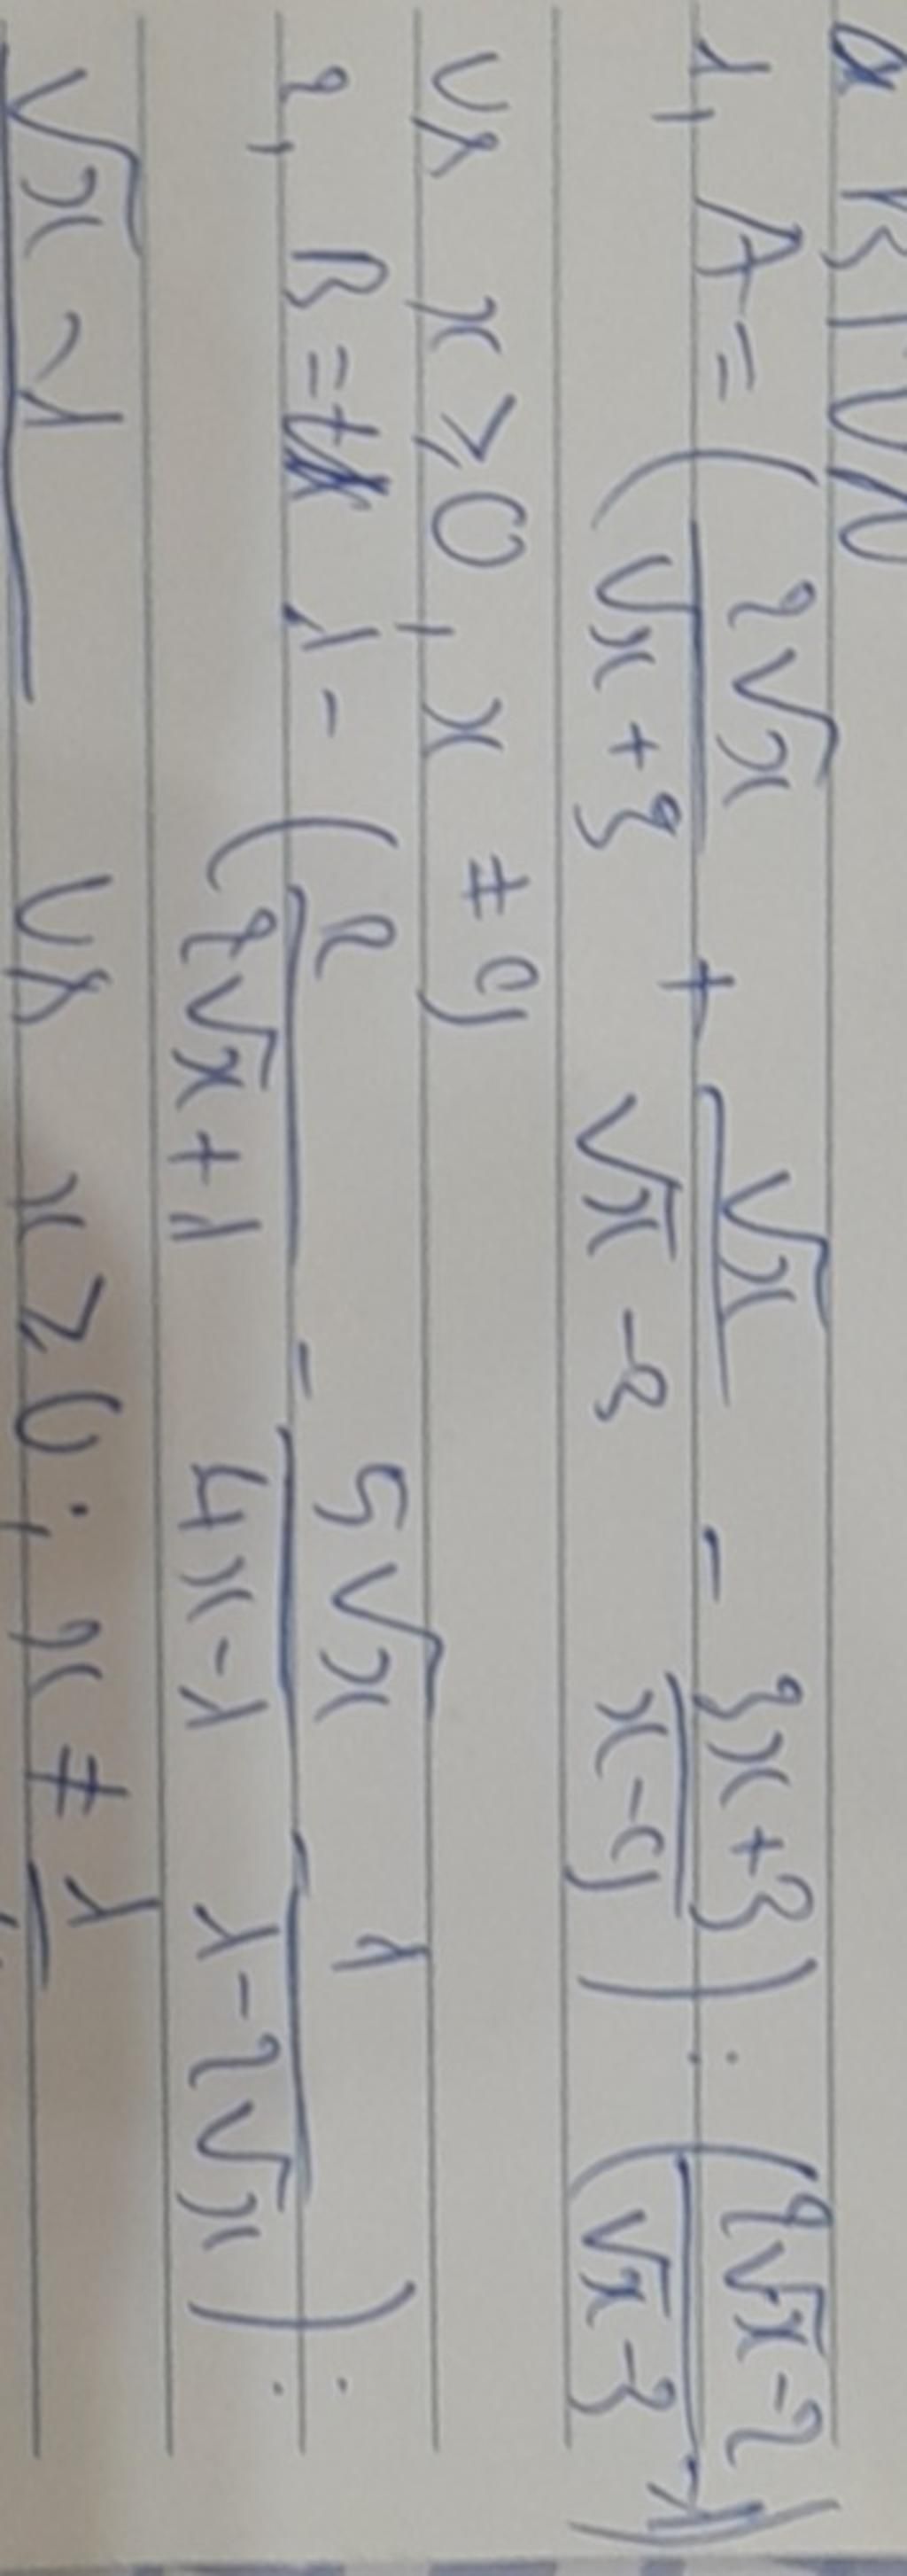 BTVN
1, A = ( 2√x / (√x + 3) + √x / (√x - 3) - (3x + 3) / (x - 9) ) : ( (2√x - 2) / (√x - 3) - 1 )
Vs x ≥ 0, x ≠ 9
2, B = 1 - ( 2 / (2√x + 1) - 5√x / (4x - 1) - 1 / (1 - 2√x) ) :
√x - 1 Vs x ≥ 0 ; x ≠ 1